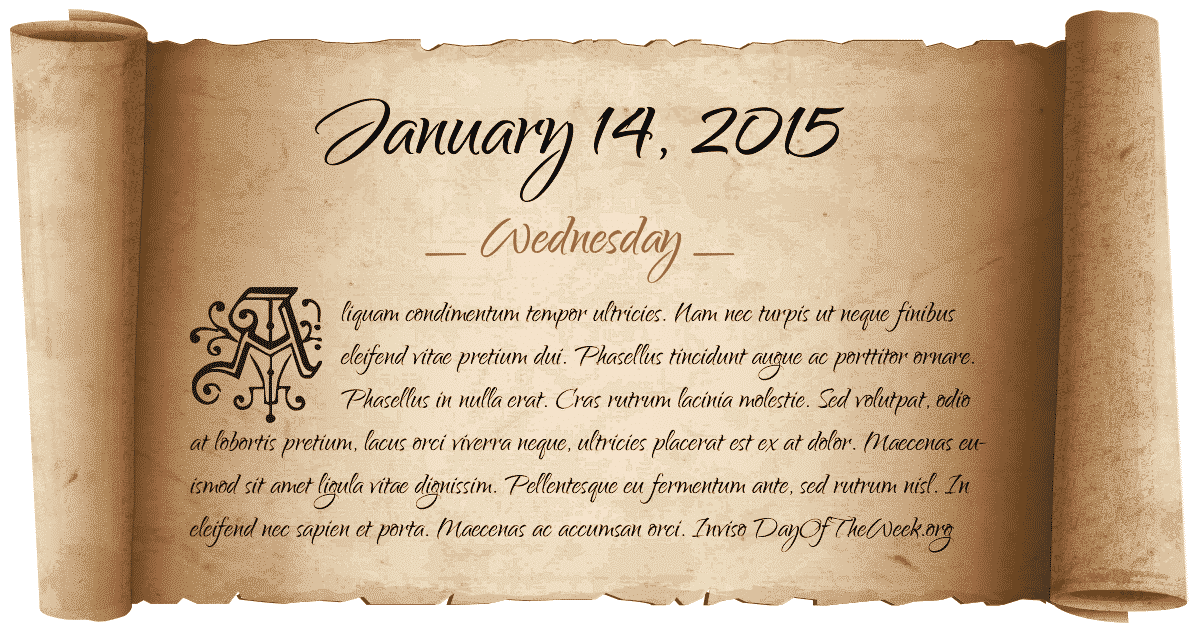 January 14, 2015
Wednesday
Aliquam condimentum tempor ultricies. Nam nec turpis ut neque finibus
eleifend vitae pretium dui. Phasellus tincidunt augue ac porttitor ornare.
Phasellus in nulla erat. Cras rutrum lacinia molestie. Sed volutpat, odio
at lobortis pretium, lacus orci viverra neque, ultricies placerat est ex at dolor. Maecenas eu-
ismod sit amet ligula vitae dignissim. Pellentesque eu fermentum ante, sed rutrum nisl. In
eleifend nec sapien et porta. Maecenas ac accumsan orci. Inviso DayOfTheWeek.org